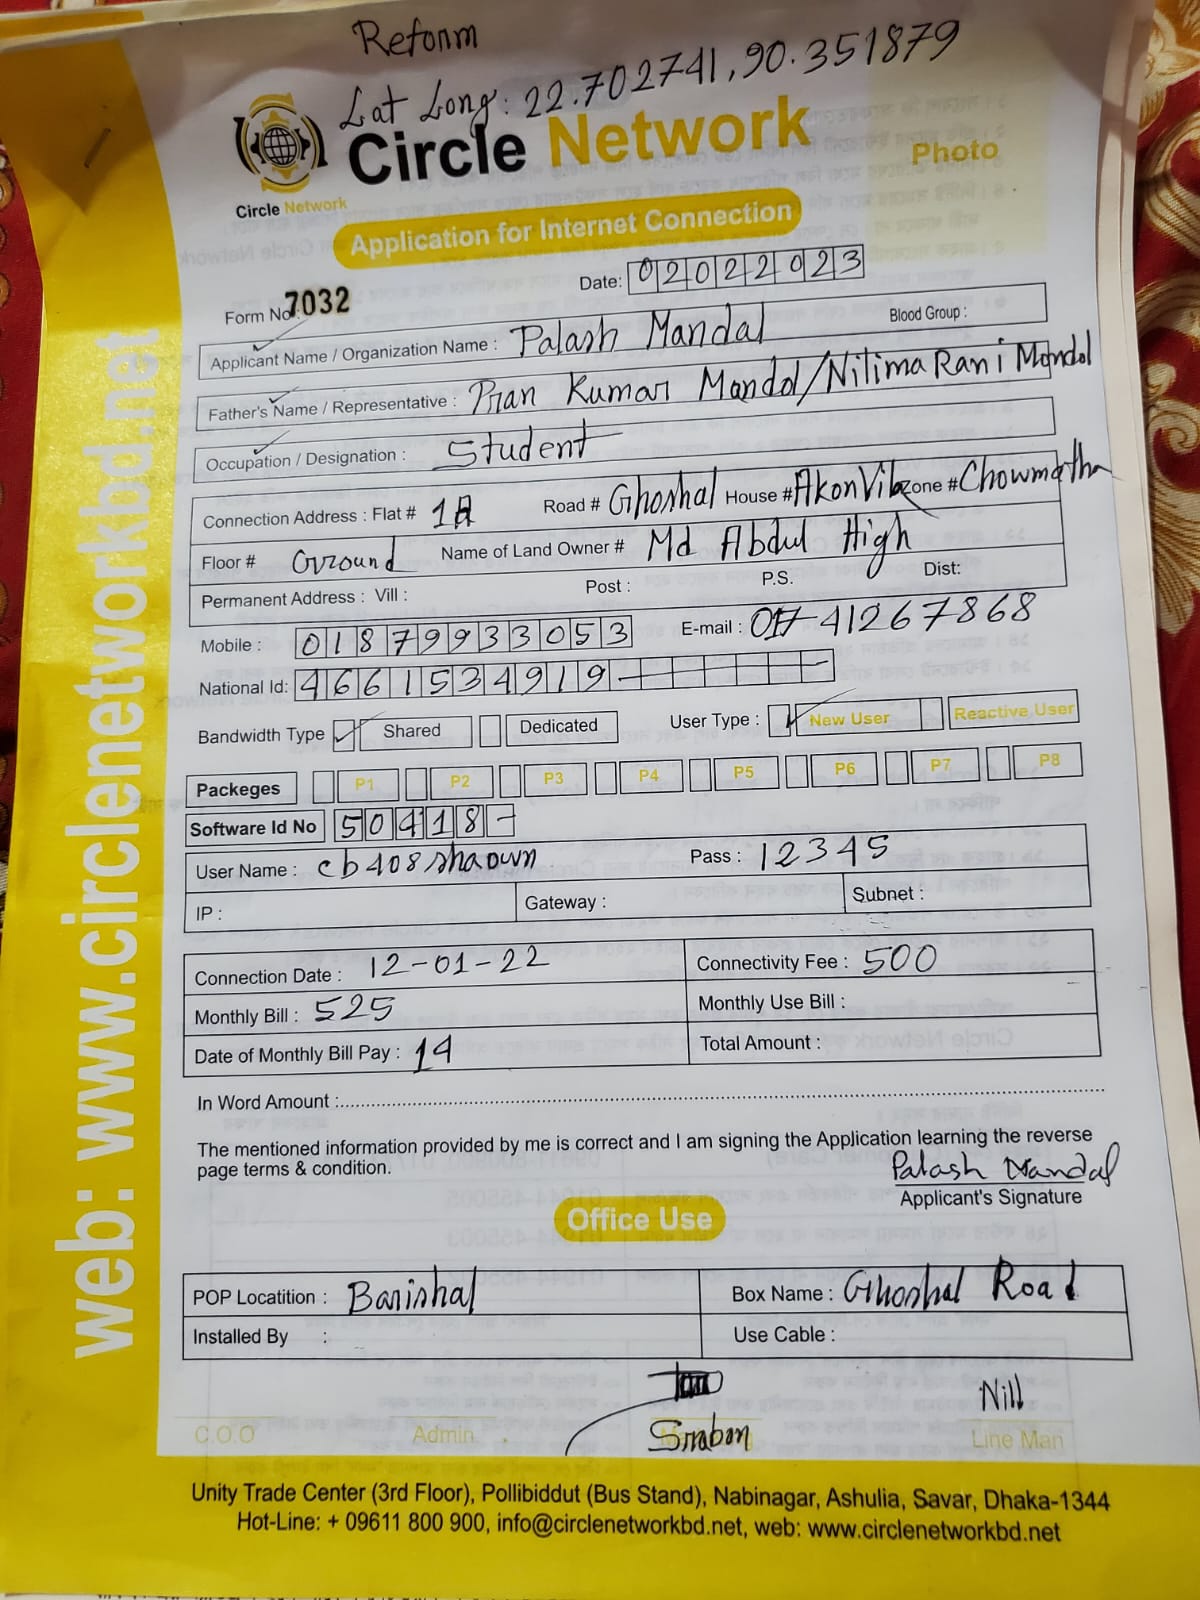 Reform
Lat Long: 22.702741, 90.351879
Circle Network
Circle Network
Photo
Application for Internet Connection
Date: 02022023
Form No: 7032
Applicant Name / Organization Name : Palash Mandal Blood Group :
Father's Name / Representative : Pran Kumar Mandol/Nilima Rani Mondol
Occupation / Designation : Student
Connection Address : Flat # 1A Road # Ghoshal House # Akon Villa Zone # Chowmatha
Floor # Ground Name of Land Owner # Md Abdul High
Permanent Address : Vill : Post : P.S. Dist:
Mobile : 01879933053 E-mail : 01741267868
National Id: 4661534919
Bandwidth Type Shared Dedicated User Type : New User Reactive User
Packeges P1 P2 P3 P4 P5 P6 P7 P8
Software Id No 50418-
User Name : cb408shaown Pass : 12345
IP : Gateway : Subnet :
Connection Date : 12-01-22 Connectivity Fee : 500
Monthly Bill : 525 Monthly Use Bill :
Date of Monthly Bill Pay : 14 Total Amount :
In Word Amount :
The mentioned information provided by me is correct and I am signing the Application learning the reverse
page terms & condition.
Palash Mandal
Applicant's Signature
Office Use
POP Locatition : Barishal Box Name : Ghoshal Road
Installed By : Use Cable :
Nill
Sraban
C.O.O Admin Line Man
Unity Trade Center (3rd Floor), Pollibiddut (Bus Stand), Nabinagar, Ashulia, Savar, Dhaka-1344
Hot-Line: + 09611 800 900, info@circlenetworkbd.net, web: www.circlenetworkbd.net
web: www.circlenetworkbd.net